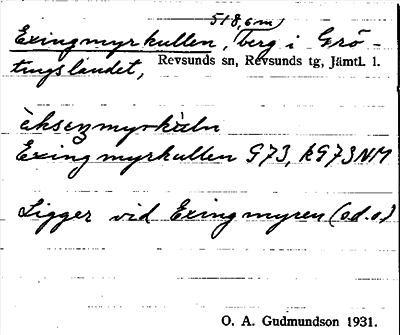 518,6 m
Exingmyrkullen, berg i Grö-
tingslandet, Revsunds sn, Revsunds tg, Jämtl. l.
Exingmyrkullen G73, kG73NM
Ligger vid Exingmyren (o.d.o.)
O. A. Gudmundson 1931.